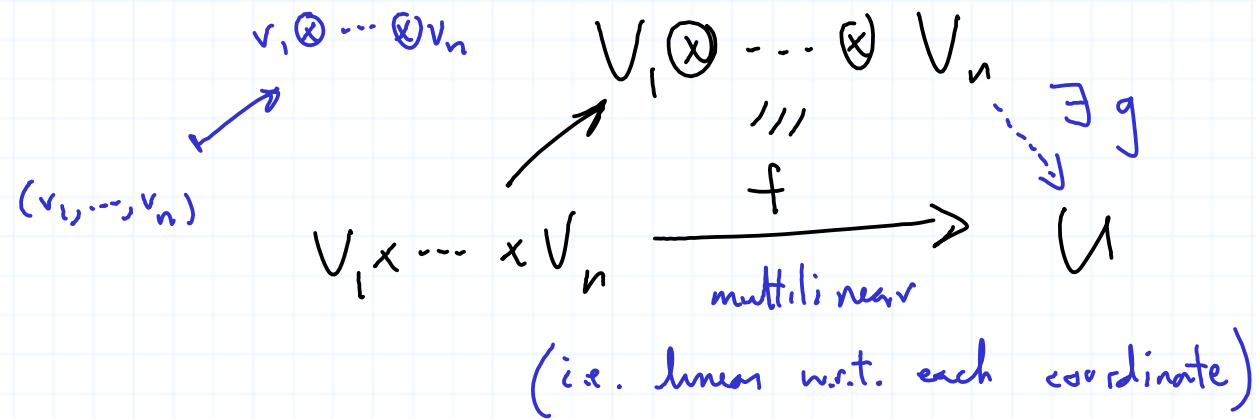 v₁⊗ ··· ⊗vₙ
V₁⊗ ··· ⊗ Vₙ
∃ g
(v₁, ..., vₙ)
f
V₁ × ··· × Vₙ U
multilinear
(i.e. linear w.r.t. each coordinate)